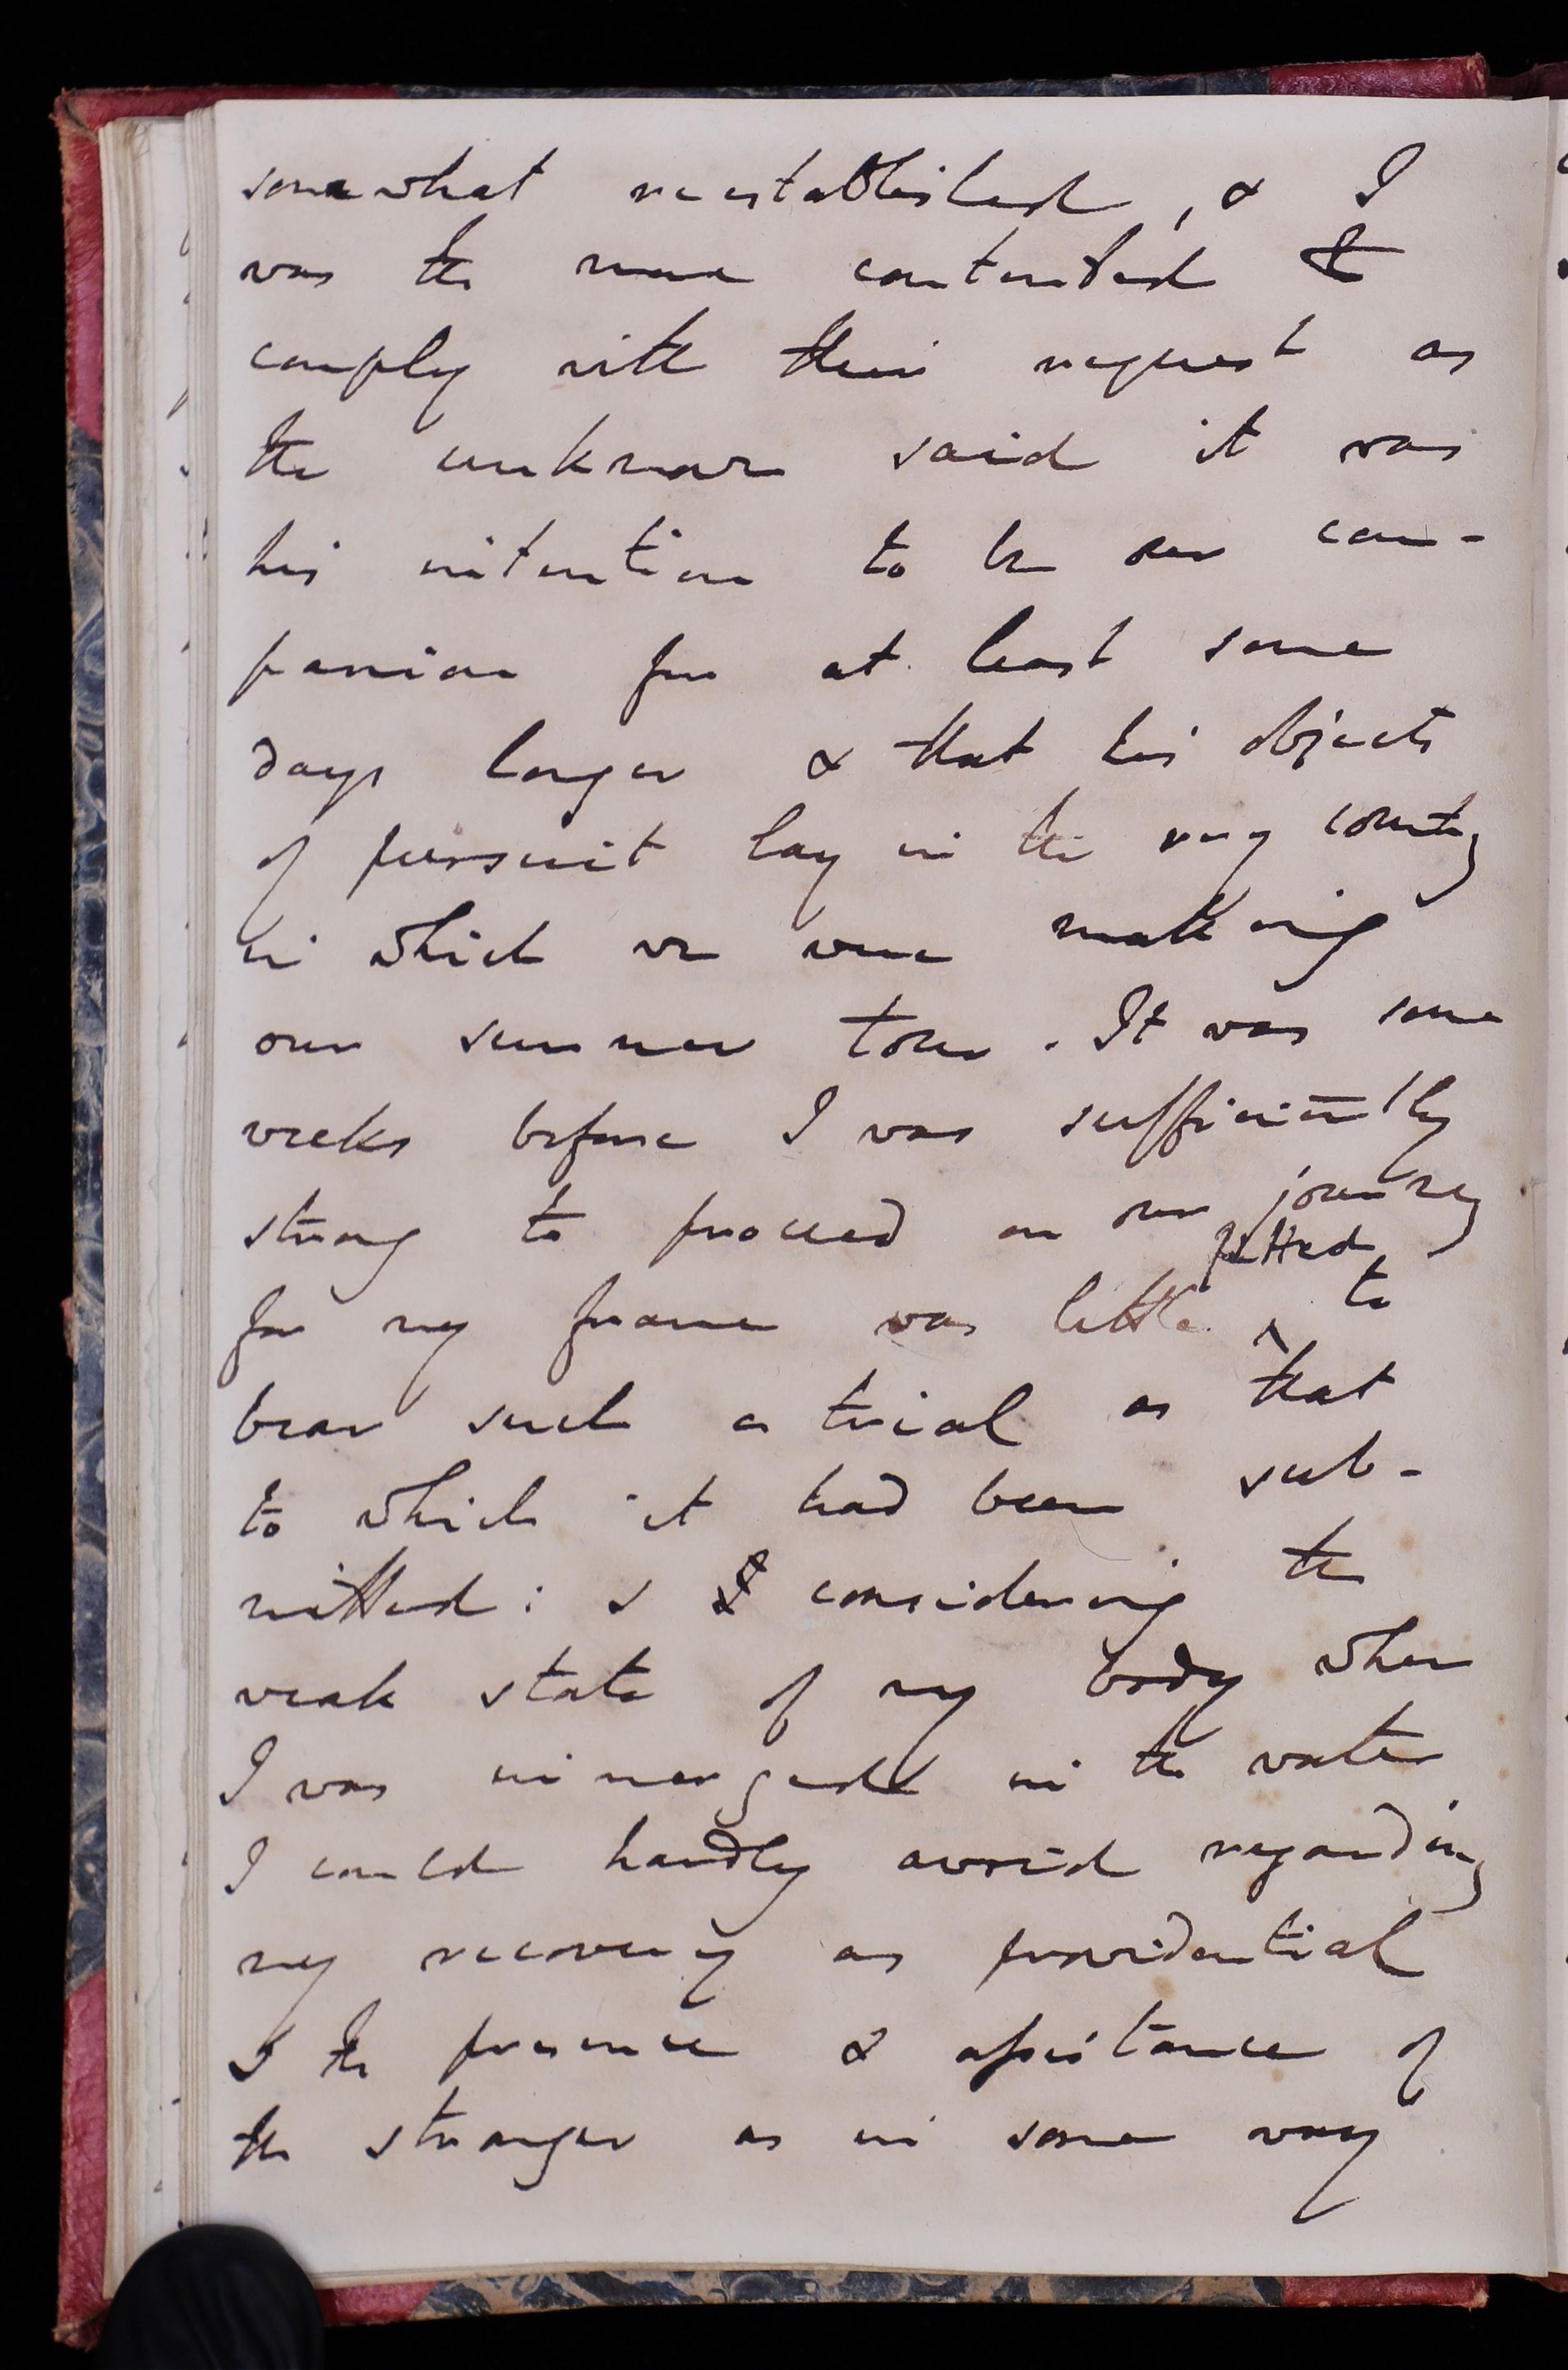 somewhat reestablished, & I
was the more contented to
comply with their request as
the unknown said it was
his intention to be our com-
panion for at least some
days longer & that his objects
of pursuit lay in the very country
in which we were making
our summer tour. It was some
weeks before I was sufficiently
strong to proceed on our journey
fitted
for my frame was little ^ to
bear such a trial as that
to which it had been sub-
mitted: & considering the
weak state of my body when
I was immerged in the water
I could hardly avoid regarding
my recovery as providential
& the presence & assistance of
the stranger as in some way